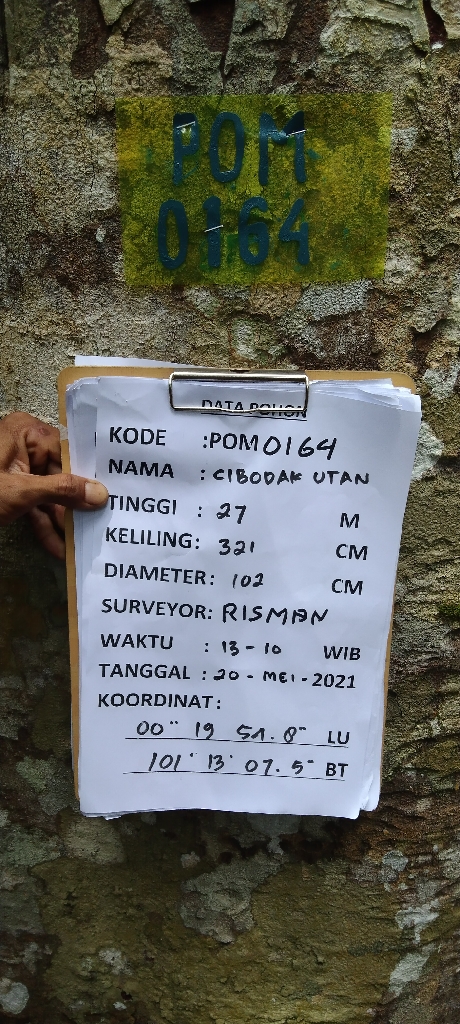 POM
0164
DATA POHON
KODE :POM0164
NAMA : CIBODAK UTAN
TINGGI : 27 M
KELILING: 321 CM
DIAMETER: 102 CM
SURVEYOR: RISMAN
WAKTU : 13-10 WIB
TANGGAL : 20 - MEI - 2021
KOORDINAT:
00" 19 51.8" LU
101° 13' 07.5" BT